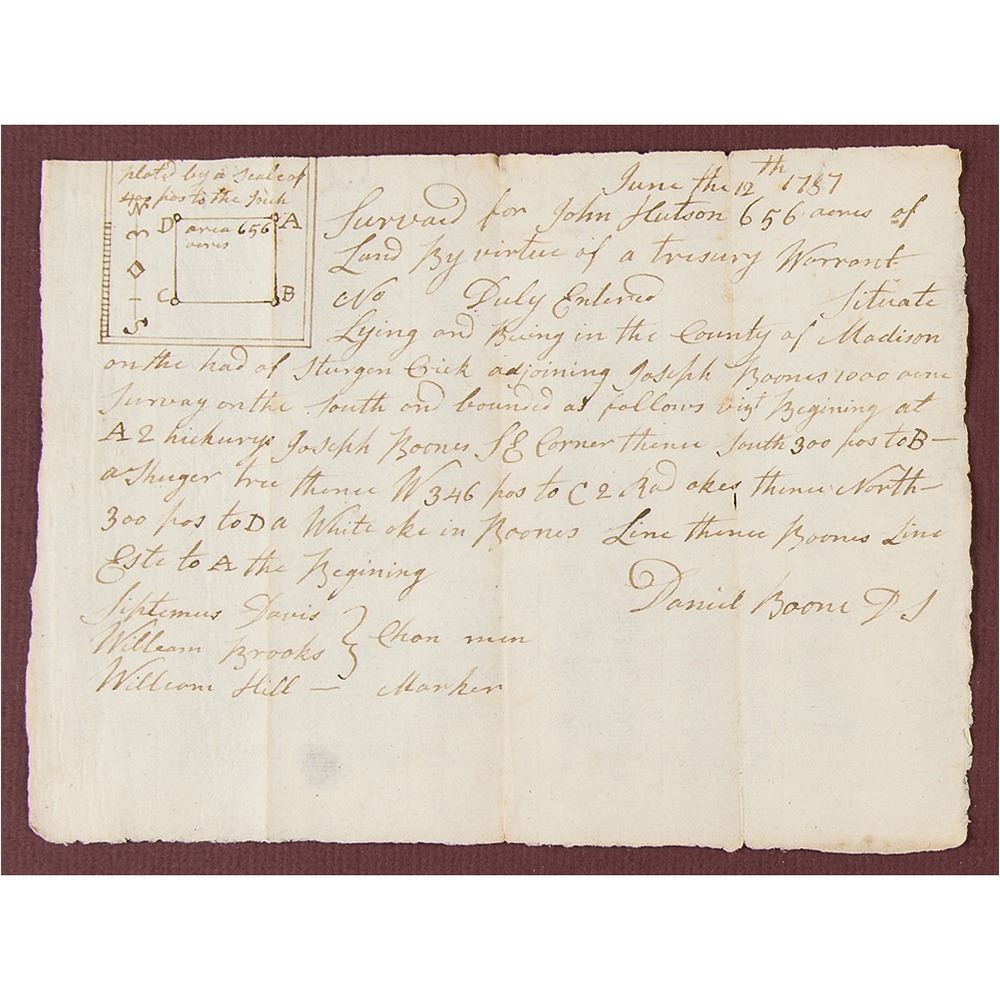 ploted by a Scale of
400 pos to the Inch
N
S
D
A
area 656
acres
C
B
June the 12th 1787
Survaid for John Hutson 656 acres of
Land By virtue of a tresury Warrant
No Duly Entered Situate
Lying and Being in the County of Madison
on the had of Sturgen Crick adjoining Joseph Boones 1000 acre
Survay on the South and bounded as follows vizt Begining at
A 2 hickurys Joseph Boones S E Corner thence South 300 pos to B —
a Shuger tree thence W 346 pos to C 2 Rad okes thence North
300 pos to D a White oke in Boones Line thence Boones Line
Este to A the Begining
Daniel Boone D S
Siptemus Davis
William Brooks } Chan men
William Hill — Marker